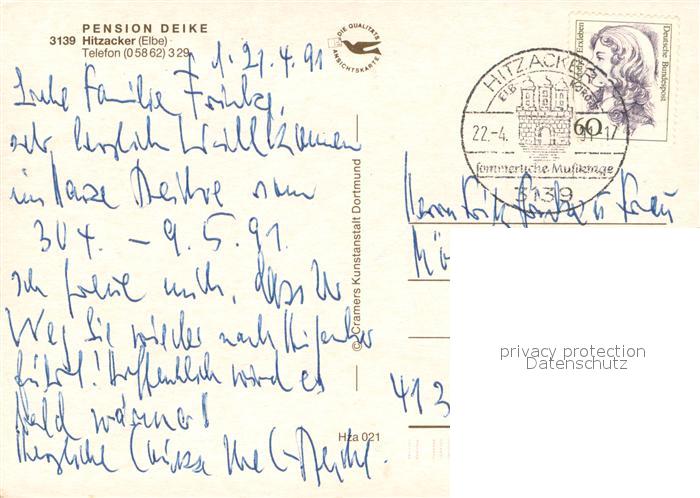 PENSION DEIKE
3139 Hitzacker (Elbe)
Telefon (05862) 329
DIE QUALITÄTS
ANSICHTSKARTE
21.4.91
Liebe Familie
sehr herzlich Willkommen
im Hause Deike vom
30 4. – 9.5.91.
Ich freue mich, dass Ihr
Weg Sie wieder nach Hitzacker
führt! Hoffentlich wird es
bald wärmer!
Herzliche Grüsse
© Cramers Kunstanstalt Dortmund
Hza 021
Deutsche Bundespost
60
HITZACKER
22.-4.
sommerliche Musiktage
3139
Herrn Fritz u Frau
413
privacy protection
Datenschutz